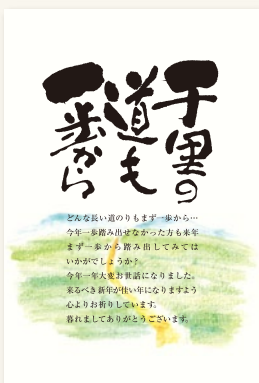 千里の
道も
一歩から
どんな長い道のりもまず一歩から…
今年一歩踏み出せなかった方も来年
まず一歩から踏み出してみては
いかがでしょうか?
今年一年大変お世話になりました。
来るべき新年が佳い年になりますよう
心よりお祈りしています。
暮れましてありがとうございます。